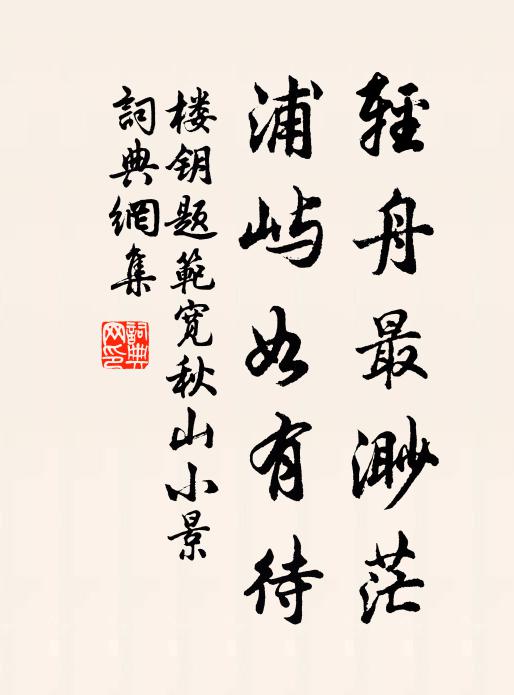 輕舟最渺茫
浦屿如有待
楼钥题範宽秋山小景
詞典網集
詞典網印